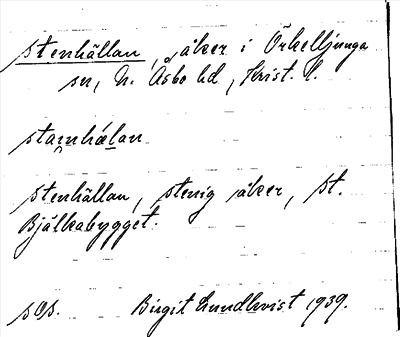 stenhällan, åker i Örkelljunga
sn, N. Åsbo hd, Krist. l.
stainhælan
stenhällan, stenig åker, st.
Bjälkabygget.
sOs. Birgit Lundkvist 1939.